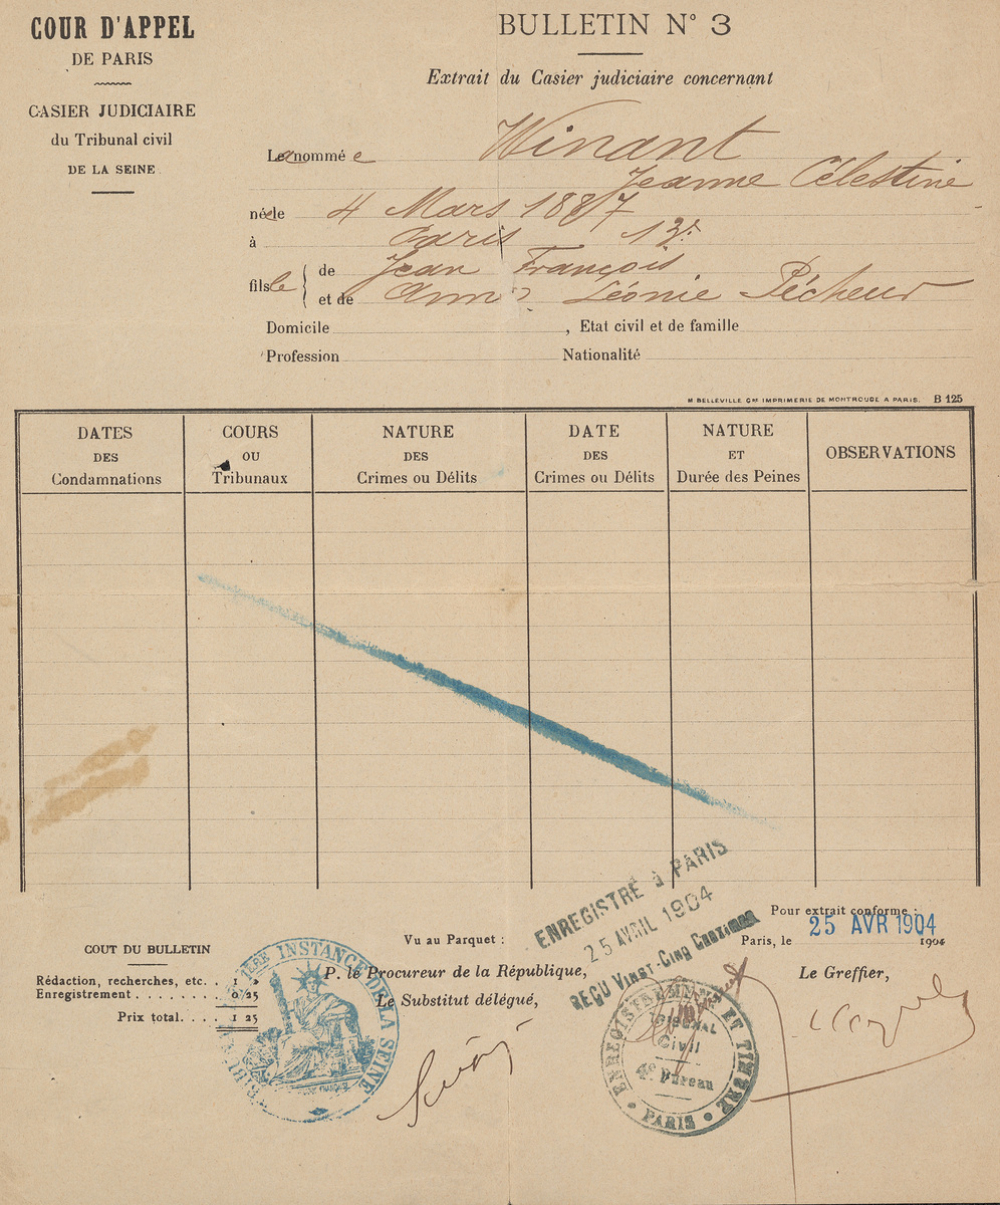 COUR D'APPEL
DE PARIS
CASIER JUDICIAIRE
du Tribunal civil
DE LA SEINE
BULLETIN N° 3
Extrait du Casier judiciaire concernant
La nommée Winant
Jeanne Célestine
née le 4 Mars 1887
à Paris 13e
fille de Jean François
et de Anne Léonie Pécheur
Domicile , Etat civil et de famille
Profession Nationalité
M BELLEVILLE Gde IMPRIMERIE DE MONTROUGE A PARIS. B 125
DATES DES Condamnations
COURS OU Tribunaux
NATURE DES Crimes ou Délits
DATE DES Crimes ou Délits
NATURE ET Durée des Peines
OBSERVATIONS
ENREGISTRÉ à PARIS
25 AVRIL 1904
REÇU VINGT-CINQ CENTIMES
COUT DU BULLETIN
Rédaction, recherches, etc. . 1 »
Enregistrement . . . . . . . . 0 25
Prix total. . . . 1 25
Vu au Parquet :
P. le Procureur de la République,
Le Substitut délégué,
Pour extrait conforme :
Paris, le 25 AVR 1904 1904
Le Greffier,
1ÈRE INSTANCE DE LA SEINE
ENREGISTREMENT ET TIMBRE
TRIBUNAL
Civil
Bureau
PARIS